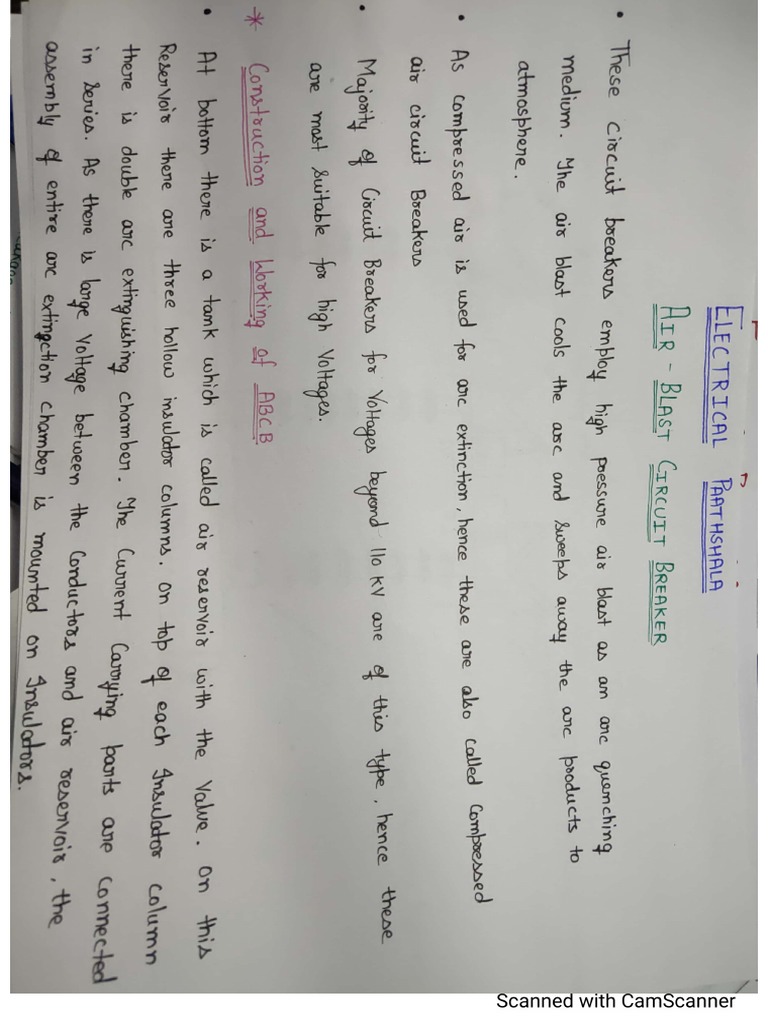 ELECTRICAL PAATHSHALA
AIR-BLAST CIRCUIT BREAKER
• These Circuit breakers employ high pressure air blast as an arc quenching
medium. The air blast cools the arc and sweeps away the arc products to
atmosphere.
• As compressed air is used for arc extinction, hence these are also called Compressed
air circuit Breakers
• Majority of Circuit Breakers for Voltages beyond 110 kV are of this type, hence these
are most Suitable for high Voltages.
* Construction and Working of ABCB
• At bottom there is a tank which is called air reservoir with the Valve. On this
Reservoir there are three hollow insulator columns. On top of each Insulator column
there is double arc extinguishing chamber. The Current Carrying parts are Connected
in Series. As there is large Voltage between the Conductors and air reservoir, the
assembly of entire arc extinction chamber is mounted on Insulators.
Scanned with CamScanner